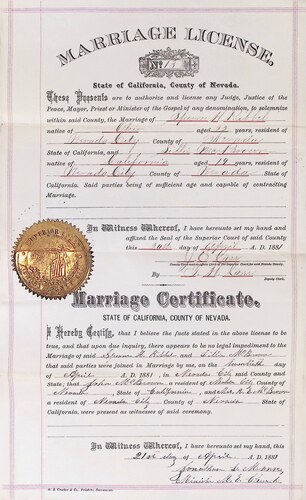 MARRIAGE LICENSE,
No. 17
State of California, County of Nevada.
These Presents are to authorize and license any Judge, Justice of the
Peace, Mayor, Priest or Minister of the Gospel of any denomination, to solemnize
within said County, the Marriage of Spencer
native of Ohio aged 22 years, resident of
Nevada City County of Nevada
State of California, and
native of California aged 19 years, resident of
Nevada City County of Nevada State of
California. Said parties being of sufficient age and capable of contracting
Marriage.
In Witness Whereof, I have hereunto set my hand and
affixed the Seal of the Superior Court of said County
this 20th day of April A. D. 1881
By
Marriage Certificate.
STATE OF CALIFORNIA, COUNTY OF NEVADA.
I Hereby Certify, that I believe the facts stated in the above license to be
true, and that upon due inquiry, there appears to be no legal impediment to the
Marriage of said Spencer and
that said parties were joined in Marriage by me, on the twentieth day of
April A. D. 1881 in Nevada City said County and
State; that John a resident of Nevada City County of
Nevada State of California, and Mrs.
a resident of Nevada City County of Nevada State of
California, were present as witnesses of said ceremony.
In Witness Whereof, I have hereunto set my hand, this
21st day of April A. D. 1881
Jonathan L. Mann
Church